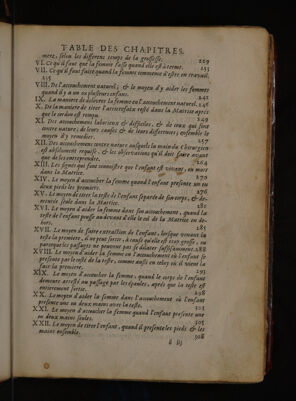 TABLE DES CHAPITRES.
mere, selon les differens temps de la grossesse. 229
VI. Ce qu'il faut que la femme fasse quand elle est à terme. 233
VII. Ce qu'il faut faire quand la femme commence d'estre en travail.
235
VIII. De l'accouchement naturel; & le moyen d'y aider les femmes
quand il y a un ou plusieurs enfans. 242
IX. La maniere de delivrer la femme en l'accouchement naturel. 246
X. Le moyen de tirer l'arrierefaix resté dans la Matrice aprés
que le cordon est rompu.
XI. Des accouchemens laborieux & difficiles, & de ceux qui sont
contre nature; de leurs causes & de leurs differences; ensemble le
moyen d'y remedier. 255
XII. Des accouchemens contre nature ausquels la main du Chirurgien
est absolument requise, & les observations qu'il doit faire avant
que de les entreprendre. 264
XIII. Les signes qui font connoistre que l'enfant est vivant, ou mort
dans la Matrice. 270
XIV. Le moyen d'accoucher la femme quand l'enfant presente un ou
deux pieds les premiers. 276
XV. Le moyen de tirer la teste de l'enfant separée de son corps, & demeurée
seule dans la Matrice. 281
XVI. Le moyen d'aider la femme dans son accouchement, quand la
teste de l'enfant pousse au devant d'elle le col de la Matrice en dehors.
285
XVII. Le moyen de faire extraction de l'enfant, lorsque venant la
teste la premiere, il ne peut sortir, à cause qu'elle est trop grosse, ou
parceque les passages ne peuvent pas se dilater suffisamment. 288
XVIII. Le moyen d'aider la femme en l'accouchement où l'enfant se
presente par le costé de la teste, comme aussi en celuy où il vient la
face la premiere. 293
XIX. Le moyen d'accoucher la femme, quand le corps de l'enfant
demeure arresté au passage par les épaules, aprés que la teste est
entierement sortie. 298
XX. Le moyen d'aider la femme dans l'accouchement où l'enfant
presente une ou deux mains avec la teste. 301
XXI. Le moyen d'accoucher la femme quand l'enfant presente une
ou deux mains seules. 305
XXII. Le moyen de tirer l'enfant, quand il presente les pieds & les
mains ensemble. 308